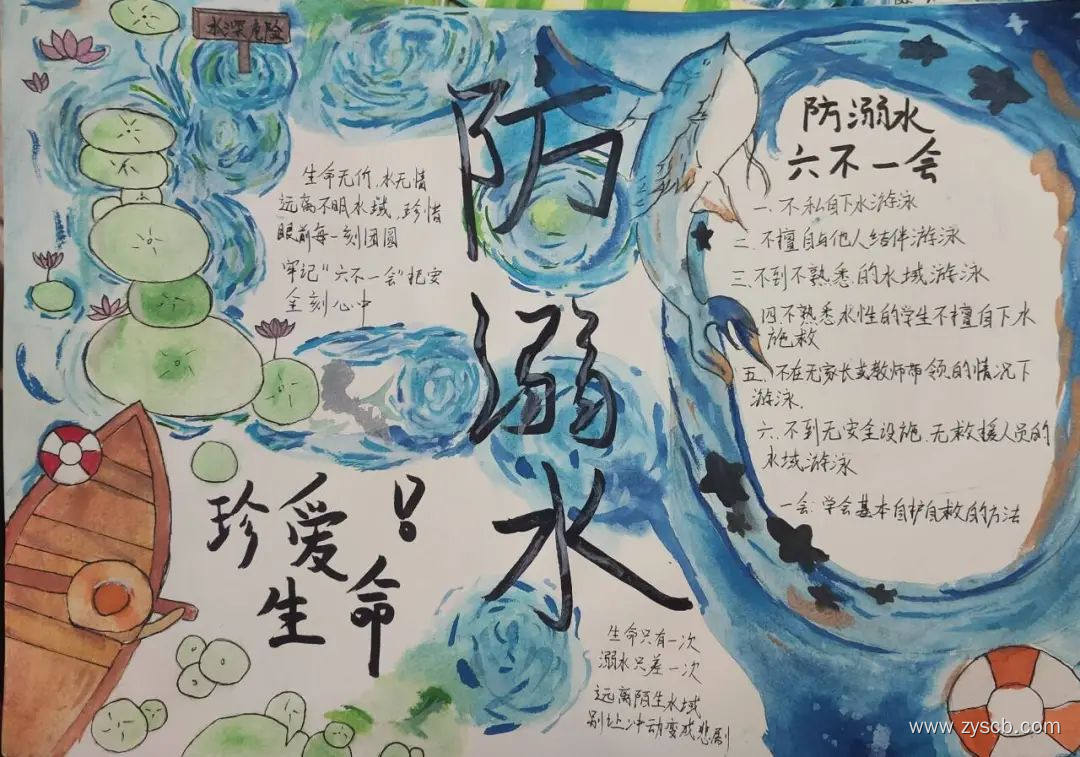 水深危险
防溺水
生命无价,水无情
远离不明水域,珍惜
眼前每一刻团圆
牢记“六不一会”把安
全刻心中
珍爱
生命!
防溺水
六不一会
一、不私自下水游泳
二、不擅自与他人结伴游泳
三、不到不熟悉的水域游泳
四不熟悉水性的学生不擅自下水
施救
五、不在无家长或教师带领的情况下
游泳.
六、不到无安全设施、无救援人员的
水域游泳
一会:学会基本自护自救的方法
生命只有一次
溺水只差一次
远离陌生水域
别让冲动变成悲剧
www.zyscb.com